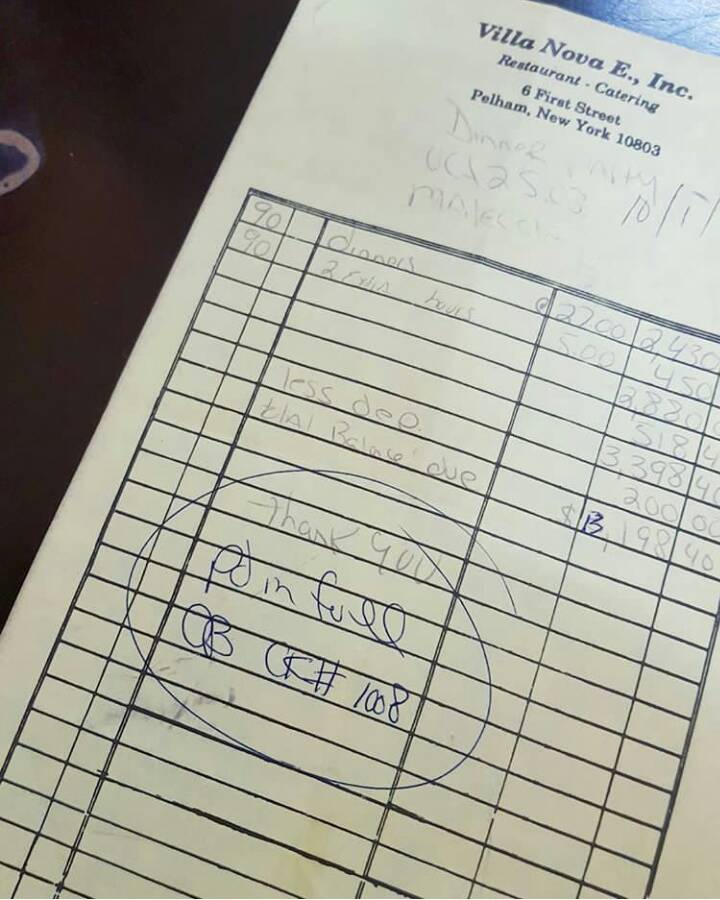 Villa Nova E., Inc.
Restaurant - Catering
6 First Street
Pelham, New York 10803
Dinner Party
10/1
90 dinners @ 27.00 2,430
90 2 extra hours 5.00 450
2,880 0
518 4
3,398 40
less dep. 200 00
total Balance due $ 3,198 40
Thank you
pd in full
CK# 1008